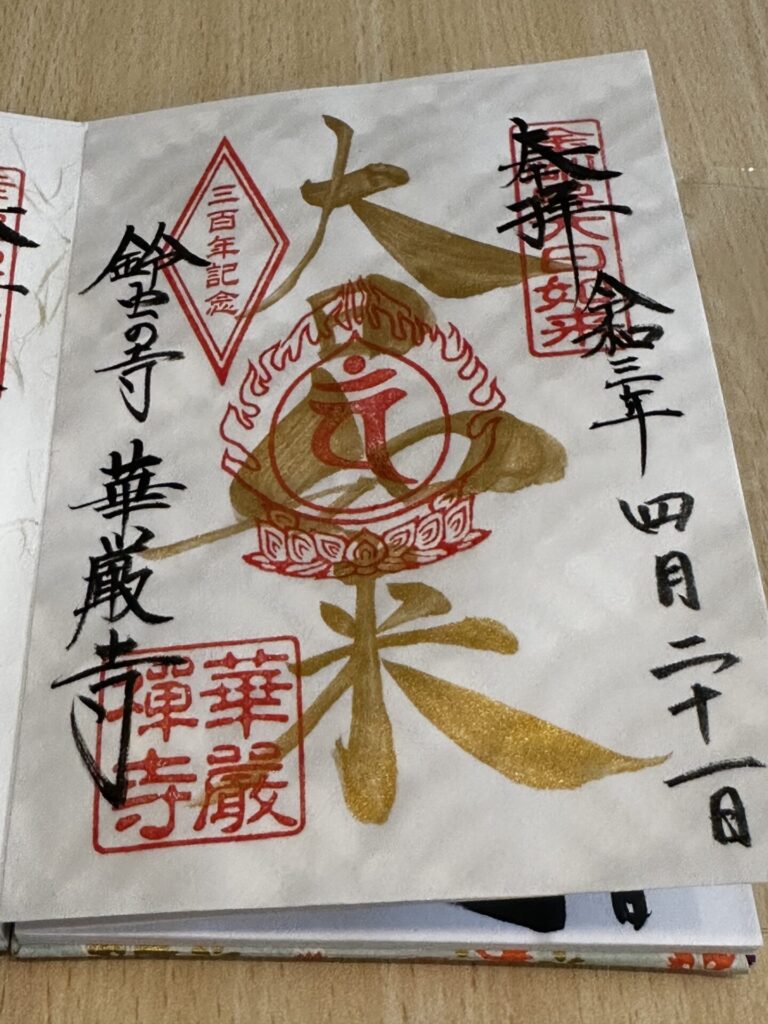 奉拝
令和三年 四月 二十一日
金剛界大日如来
大日如来
三百年記念
鈴虫の寺 華厳寺
華嚴
禪寺